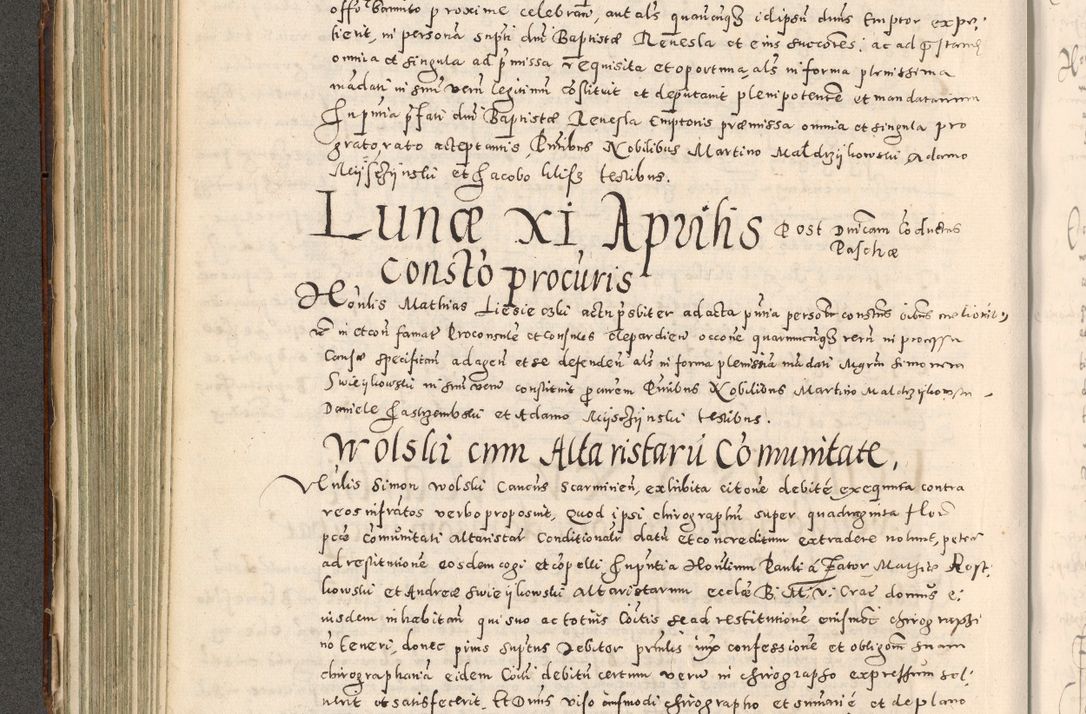 offo Bannito proxime celebram, aut als quamcunqz idipsum dnus Emptor expe-
tierit, in persona supti dni Baptistæ Renesla et eius successores, ac ad
omnia et singula ad pmissa requisita et oportuna, als in forma plenissima
madati in smu veru legitimu costituit et deputauit plenipotente et mandatarium
In pntia pfati dni Baptistæ Renesla Emptoris præmissa omnia et singula pro
grato, rato acceptantis, Pntibus Nobilibus Martino Maldrzijkowski Adamo
Mijszijnski et Jacobo testibus.
Lunæ XI Aprilis Post Dnicam Coductus
Paschæ
Consto procuris
Honlis Mathias Liesieczki actu psbiter ad acta pntia personr constus oibus melioribus
in et con famat Proconsule et consules Clepardien occone quarumcunqz reru in processu
Causæ specifican ad agen et se defenden als in forma plenissia mudati Mgrum Simonem
Swieijkowski in smu veru constituit pcurem Pntibus Nobilibus Martino Maldrzijkowski
Daniele Jastrzembski et Adamo Mijszijnski testibus.
Wolski cum Altaristaru Comunitate.
Vnlis Simon Wolski Cancus Scarmirien, exhibita citone debite exequuta contra
reos infratos verbo proposuit, Quod ipsi chirographu super quadraginta flor
pccæ Comunitati Altaristar Conditionalr datu et concreditum extradere nolunt, peter
ad restitutione eosdem cogi et copelli In pntia Honlium Pauli à Zator, Mathiæ Rost-
kowski et Andreæ Swieijkowski Altaristarum ecclæ B. M. V. Crac domus e-
iusdem inhabitan qui suo ac totius Coitis se ad restitutione eiusmoi chirographi
no teneri, donec prius suptus Debitor prnlis iux confessione et obligom suam
chirographaria eidem Coiti debitu certum veru in chirographo expressum sol-
uerit et satisfecerit. Et Dnus viso eiusmodi chirographo et sumarie et de plano